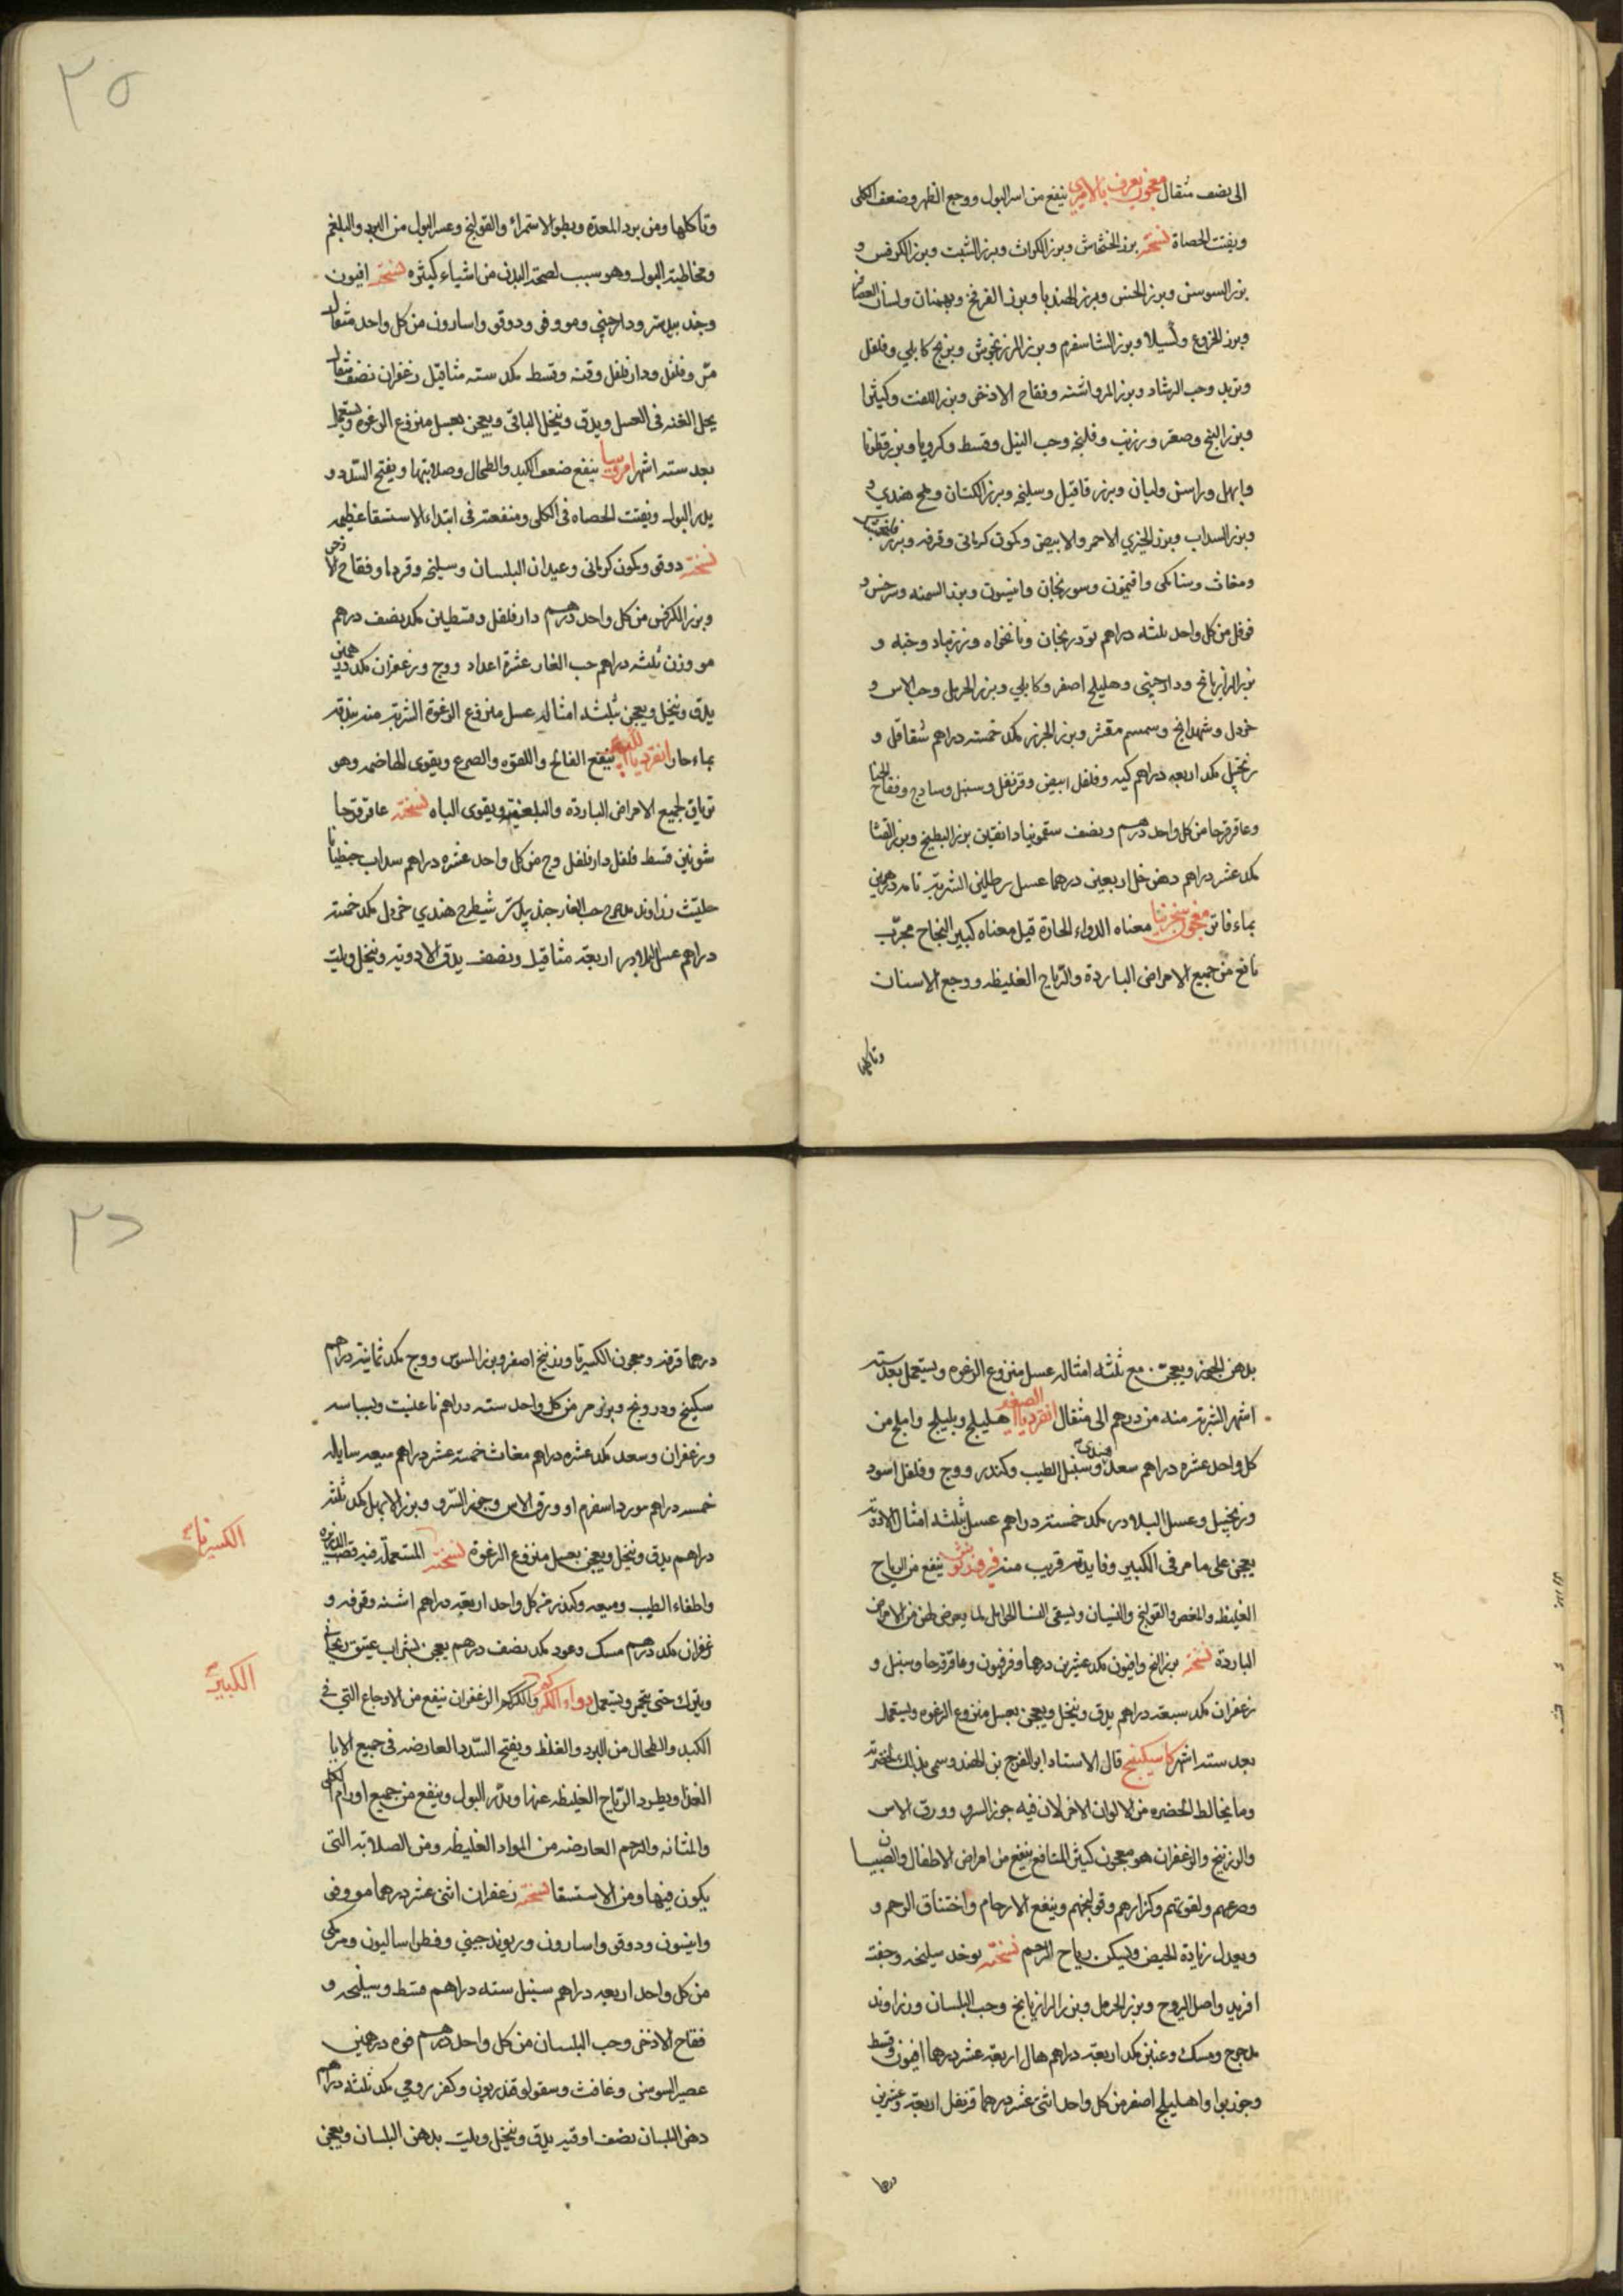 الى نصف مثقال معجون يعرف بالاميري ينفع من اسر البول ووجع الظهر وضعف الكلى
ويفتت الحصاة نسخته بزر الخشخاش وبزر الكراث وبزر الشبت وبزر الكرفس و
بزر السوسن وبزر الخس وبزر الهندبا وبزر الفرفخ وبهمنان ولسان العصافير
وبزر الخروع وبزر الشاسفرم وبزر المرزنجوش وبرنج كابلي وفلفل
وتربد وحب الرشاد وبزر المرو اشنه وفقاح الاذخر وبزر اللفت وكثيرا
وبزر البنج وصعتر وزرنب وفلنجه وحب النيل وقسط وكرويا وبزر قطونا
وابهل وراسن ولبان وبزر وسليخه وبزر الكتان وملح هندي و
وبزر السداب وبزر الخيري الاحمر والابيض وكمون كرماني وقرفه وبزر
ومغاث وسنامكى وافتيمون وسورنجان وانيسون وبزر السمنه وسرخس و
فوفل من كل واحد ثلثه دراهم بوزيدان ونانخواه وزرنباد وحبه و
بزر الرازيانج ودارچيني وهليلج اصفر وكابلي وبزر الحرمل وحب الاس و
خردل وشهدانج وسمسم مقشر وبزر الجزر مكد خمسته دراهم شقاقل و
زنجبيل مكد اربعه دراهم كيه وفلفل ابيض وقرنفل وسنبل وسادج وفقاح الحنا
وعاقرقرحا من كل واحد درهم ونصف سقمونيا دانقين بزر البطيخ وبزر القثا
مكد عشر دراهم دهن خل اربعين درهما عسل رطلين الشربة تامه درهمين
بماء فاتر معجون سنجرنيا معناه الدواء الحادة قيل معناه كبير النجاح مجرب
نافع من جميع الامراض الباردة والرياح الغليظه ووجع الاسنان
وتاكلها
٣٥
وتاكلها ومن برد المعده وبطو الاستمراء والقولنج وعسر البول من البرد والبلغم
ومخاطية البول وهو سبب لصحة البدن من اشياء كثيره نسخته افيون
وجند بيدستر ودارچيني ومو وفو ودوقو واسارون من كل واحد مثقال
مر وفلفل ودارفلفل وقنه وقسط مكد سته مثاقيل زعفران نصف مثقال
يحل القنه في العسل ويدق وينخل الباقي ويعجن بعسل منزوع الرغوه ويستعمل
بعد سته اشهر امروسيا ينفع ضعف الكبد والطحال وصلابتها ويفتح السدد و
يدر البول ويفتت الحصاه في الكلى ومنفعته في ابتداء الاستسقا عظيمه
نسخته دوقو وكمون كرماني وعيدان البلسان وسليخه وقردما وفقاح الاذخر
وبزر الكرفس من كل واحد درهم دارفلفل وقسطيلن مكد نصف درهم
مو وزن ثلثه دراهم حب الغار عشرة اعداد ووج وزعفران مكد درهمين
يدق وينخل ويعجن بثلثه امثاله عسل منزوع الرغوة الشربة منه بندقة
بماء حار انقرديا الكبير ينفع الفالج واللقوه والصرع ويقوى الهاضمه وهو
ترياق لجميع الامراض البارده والبلغميه ويقوى الباه نسخته عاقرقرحا
شونيز قسط فلفل دارفلفل وج من كل واحد عشره دراهم سداب جنطيانا
حلتيت زراوند مدحرج حب الغار جند بيدستر شيطرج هندي خردل مكد خمسة
دراهم عسل البلادر اربعة مثاقيل ونصف يدق الادوية وينخل ويلت
بدهن الجوز ويعجن مع ثلثه امثاله عسل منزوع الرغوه ويستعمل بعد سته
اشهر الشربة منه من درهم الى مثقال انقرديا الصغير هليلج وبليلج واملج من
كل واحد عشره دراهم سعد هندي وسنبل الطيب وكندر ووج وفلفل اسود
وزنجبيل وعسل البلادر مكد خمسة دراهم عسل ثلثه امثال الادويه
يعجن على ما مر في الكبير وفايدته قريب منه فيروزنوش ينفع من الرياح
الغليظه والمغص والقولنج والنسيان ويسقى النسا الحوامل لما يعرض لهن من الامراض
الباردة نسخته بزر البنج وافيون مكد عشرين درهما وفرفيون وعاقرقرحا وسنبل و
زعفران مكد سبعة دراهم يدق وينخل ويعجن بعسل منزوع الرغوه ويستعمل
بعد ستة اشهر كاسكبينج قال الاستاد ابو الفرج بن الهندو سمى بذلك لخضرته
وما يخالط الخضره من الالوان الاخر لان فيه جوز السرو وورق الاس
والزرنيخ والزعفران هو معجون كثير المنافع ينفع من امراض الاطفال والصبيان
وصرعهم ولقوتهم وكزازهم وقولنجهم وينفع الارحام واختناق الرحم و
ويعدل زيادة الحيض ويسكن رياح الرحم نسخته يوخذ سليخه وجفت
افريد واصل اليبروح وبزر الحرمل وبزر الرازيانج وحب البلسان وزراوند
مدحرج ومسك وعنبر مكد اربعة دراهم هال اربعة عشر درهما افيون وقسط
وجوز بوا واهليلج اصفر من كل واحد اثنى عشر درهما قرنفل اربعة وعشرين
درهما
٣٥
درهما قرفه ومعجون الكسيرتا وزرنيخ اصفر وبزر السوس ووج مكد ثمانية دراهم
سكبينج ودرونج وبزر مر من كل واحد سته دراهم نارغيت وبسباسه
وزعفران وسعد مكد عشره دراهم مغاث خمسة عشر دراهم ميعه سايله
خمسه دراهم مورد اسفرم او ورق الاس وجوز السرو وبزر الابهل مكد ثلثه
دراهم يدق وينخل ويعجن بعسل منزوع الرغوة نسخة المستعملة فيه قصب الذريره
واظفار الطيب وميعه وكندر من كل واحد اربعة دراهم اشنه وقرفه و
زعفران مكد درهم مسك وعود مكد نصف درهم يعجن بشراب عتيق ريحاني
ويترك حتى يتخمر ويستعمل دواء الكركم والكركم الزعفران ينفع من الاوجاع التي في
الكبد والطحال من البرد والغلظ ويفتح السدد العارضه في جميع الات
الغذا ويطرد الرياح الغليظه عنها ويدر البول وينفع من جميع اورام الكلى
والمثانه والرحم العارضه من المواد الغليظه ومن الصلابه التي
يكون فيها ومن الاستسقا نسخته زعفران اثنى عشر درهما مو وفو
وانيسون ودوقو واسارون وريوند چيني وفطراساليون ومر مكى
من كل واحد اربعه دراهم سنبل سته دراهم قسط وسليخه و
فقاح الاذخر وحب البلسان من كل واحد درهم فوه درهمين
عصير السوس وغافث وسقولوقندريون وكمون رومي مكد ثلثه دراهم
دهن البلسان نصف اوقيه يدق وينخل ويلت بدهن البلسان ويعجن
الكسيرتا
الكبير